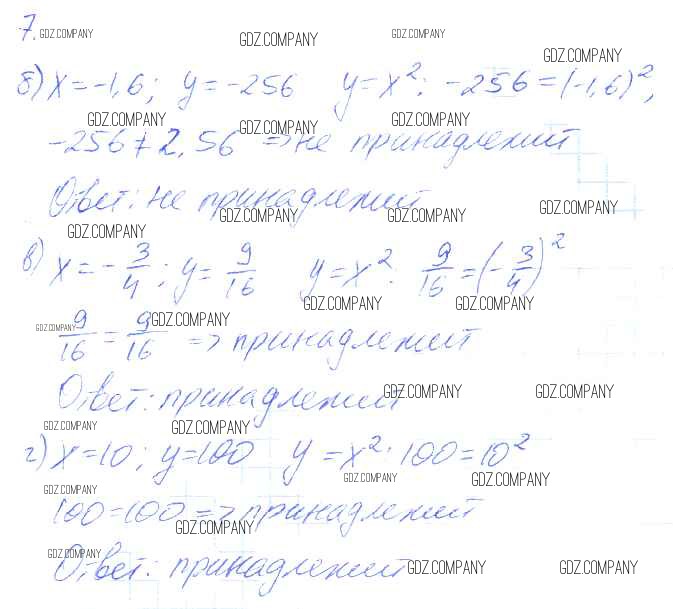 7. GDZ.COMPANY GDZ.COMPANY GDZ.COMPANY GDZ.COMPANY
б) x = -1,6; y = -256 y = x²: -256 = (-1,6)²;
GDZ.COMPANY GDZ.COMPANY GDZ.COMPANY
-256 ≠ 2,56 => не принадлежит
Ответ: не принадлежит
GDZ.COMPANY GDZ.COMPANY GDZ.COMPANY GDZ.COMPANY
в) x = -3/4; y = 9/16 y = x²: 9/16 = (-3/4)²
GDZ.COMPANY GDZ.COMPANY
GDZ.COMPANY GDZ.COMPANY
9/16 = 9/16 => принадлежит
Ответ: принадлежит
GDZ.COMPANY GDZ.COMPANY GDZ.COMPANY GDZ.COMPANY
г) x = 10; y = 100 y = x²: 100 = 10²
GDZ.COMPANY GDZ.COMPANY GDZ.COMPANY
100 = 100 => принадлежит
GDZ.COMPANY
Ответ: принадлежит
GDZ.COMPANY GDZ.COMPANY GDZ.COMPANY